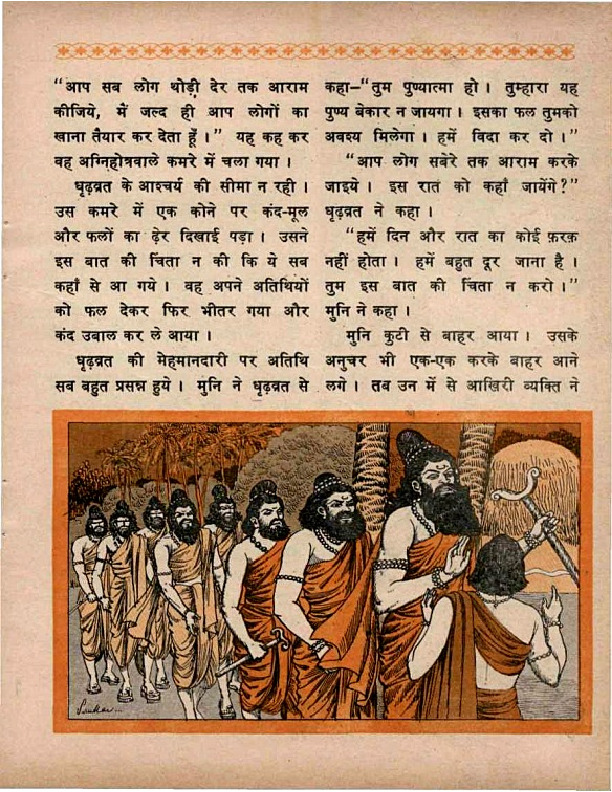 “आप सब लोग थोड़ी देर तक आराम
कीजिये, मैं जल्द ही आप लोगों का
खाना तैयार कर देता हूँ।” यह कह कर
वह अग्निहोत्रवाले कमरे में चला गया।
धृढ़व्रत के आश्चर्य की सीमा न रही।
उस कमरे में एक कोने पर कंद-मूल
और फलों का ढ़ेर दिखाई पड़ा। उसने
इस बात की चिंता न की कि ये सब
कहाँ से आ गये। वह अपने अतिथियों
को फल देकर फिर भीतर गया और
कंद उबाल कर ले आया।
धृढ़व्रत की मेहमानदारी पर अतिथि
सब बहुत प्रसन्न हुये। मुनि ने धृढ़व्रत से
कहा–“तुम पुण्यात्मा हो। तुम्हारा यह
पुण्य बेकार न जायगा। इसका फल तुमको
अवश्य मिलेगा। हमें विदा कर दो।”
“आप लोग सबेरे तक आराम करके
जाइये। इस रात को कहाँ जायेंगे?”
धृढ़व्रत ने कहा।
“हमें दिन और रात का कोई फ़रक़
नहीं होता। हमें बहुत दूर जाना है।
तुम इस बात की चिंता न करो।”
मुनि ने कहा।
मुनि कुटी से बाहर आया। उसके
अनुचर भी एक-एक करके बाहर आने
लगे। तब उन में से आखिरी व्यक्ति ने
Sankar...